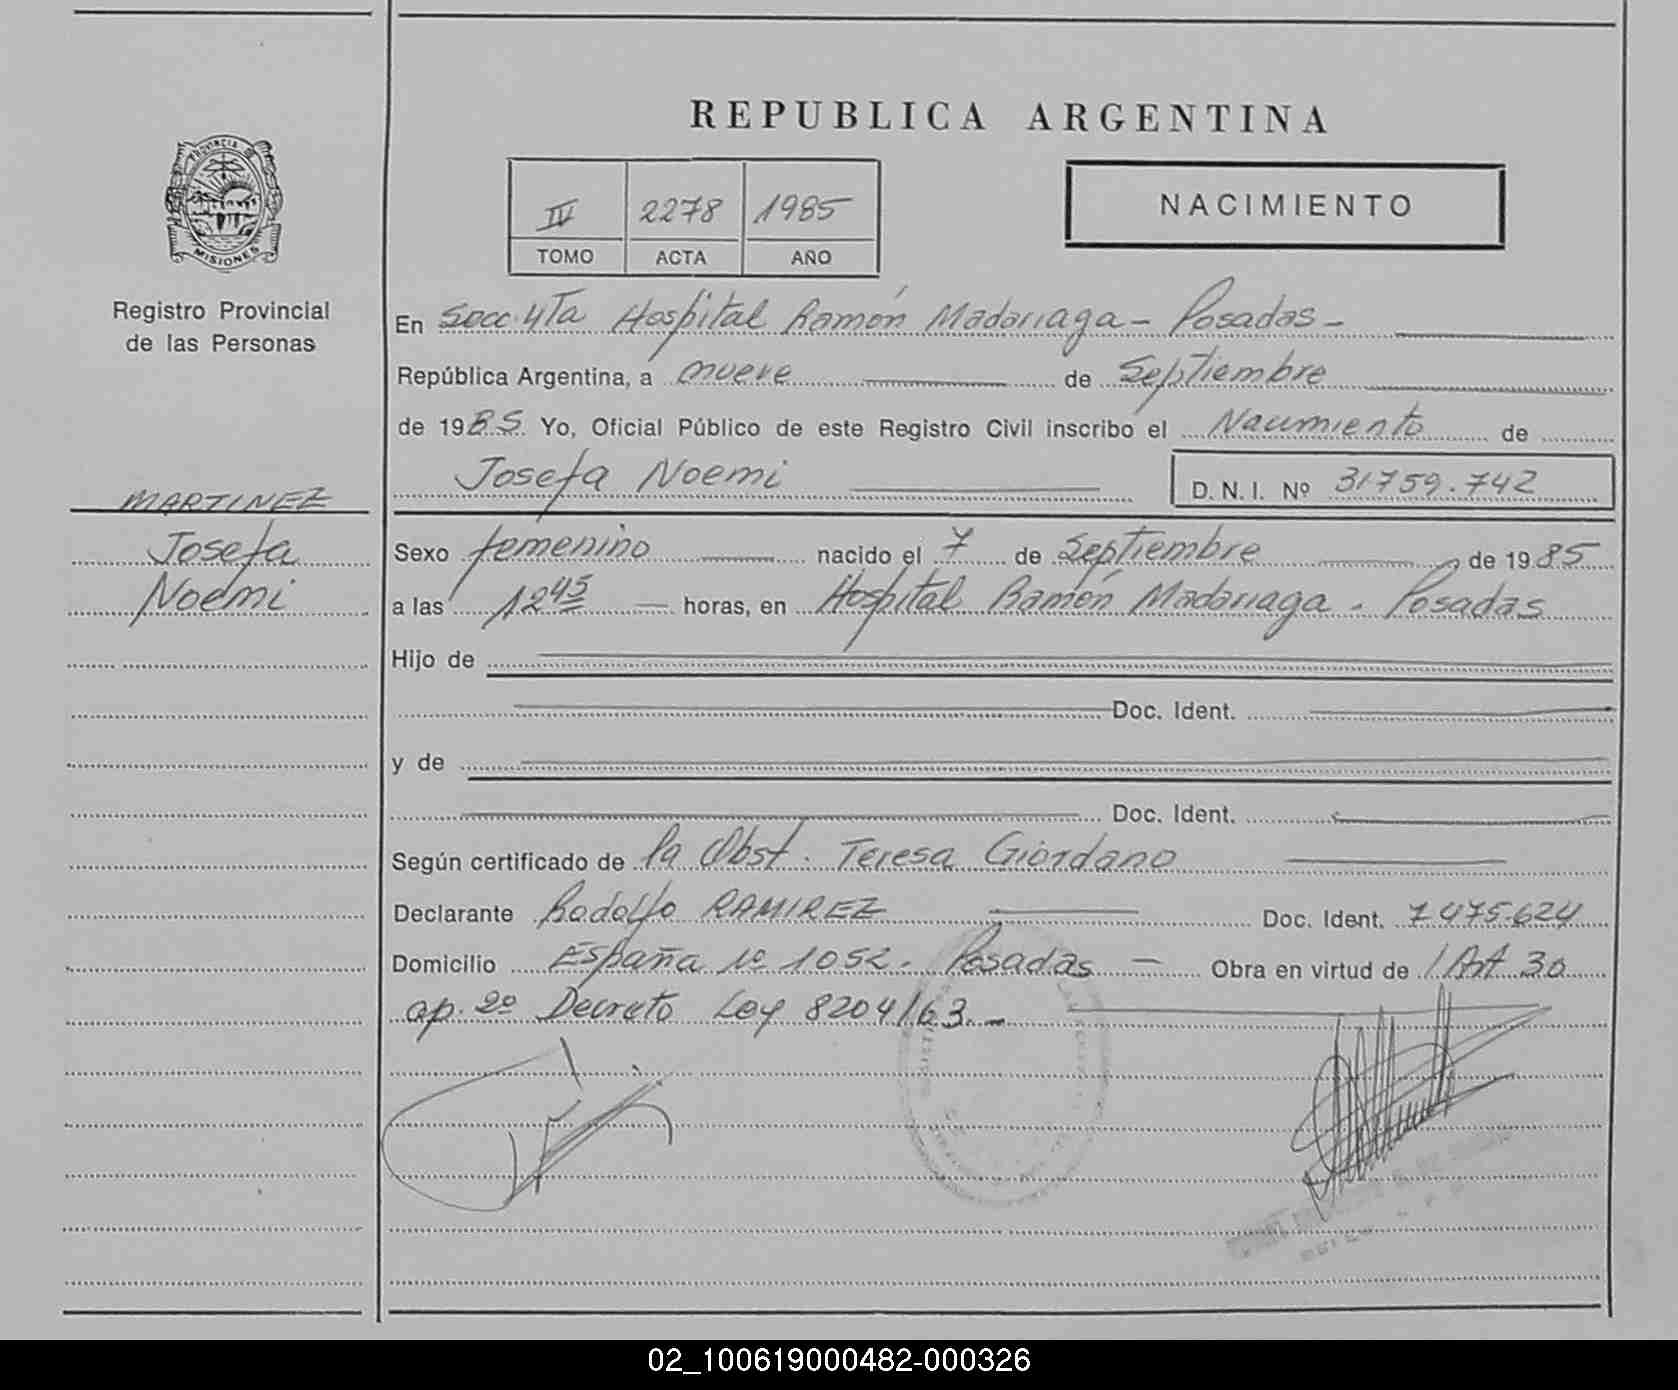 REPUBLICA ARGENTINA
PROVINCIA DE
MISIONES
Registro Provincial
de las Personas
IV 2278 1985
TOMO ACTA AÑO
NACIMIENTO
En Secc. 4Ta Hospital Ramón Madariaga - Posadas -
República Argentina, a nueve de Septiembre
de 1985. Yo, Oficial Público de este Registro Civil inscribo el Nacimiento de
Josefa Noemi D. N. I. Nº 31759.742
MARTINEZ
Josefa
Noemi
Sexo femenino nacido el 7 de Septiembre de 1985
a las 12 45 horas, en Hospital Ramón Madariaga . Posadas
Hijo de
Doc. Ident.
y de
Doc. Ident.
Según certificado de la Obst. Teresa Giordano
Declarante Rodolfo RAMIREZ Doc. Ident. 7475.624
Domicilio España Nº 1052. Posadas - Obra en virtud de Art 30
ap. 2º Decreto Ley 8204/63. -
02_100619000482-000326